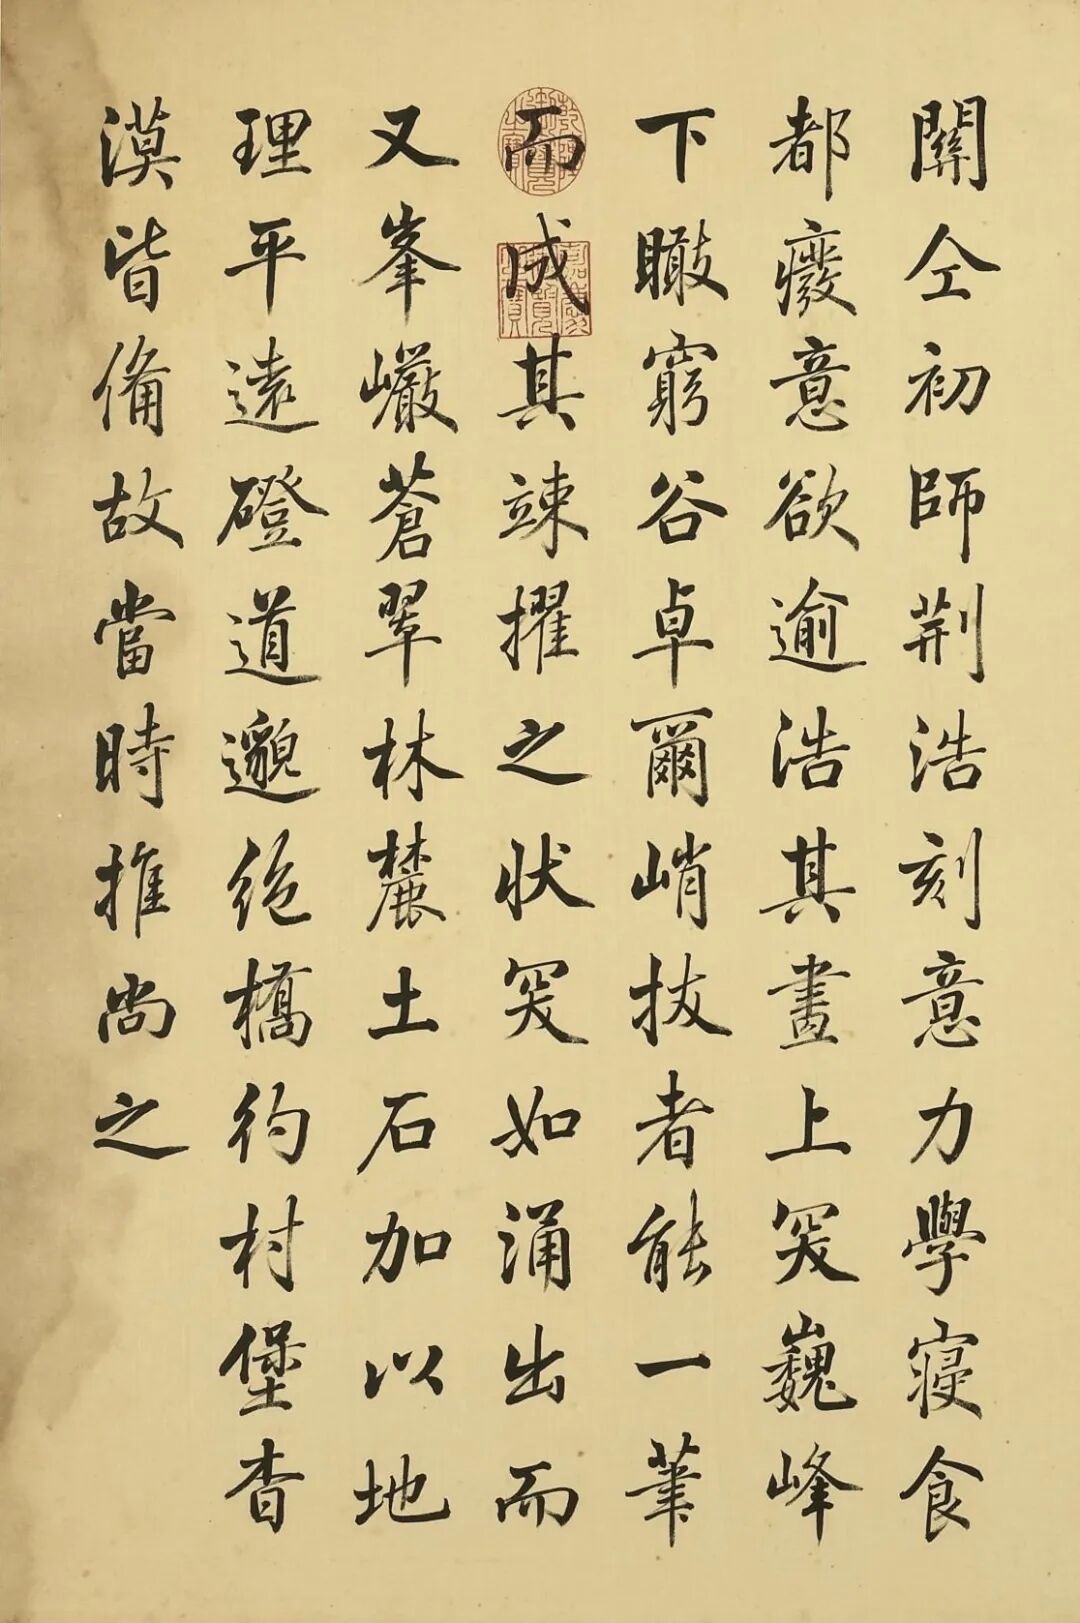 關仝初師荆浩刻意力學寢食
都癈意欲逾浩其畫上突巍峰
下瞰窮谷卓爾峭拔者能一筆
而成其竦擢之狀突如涌出而
又峯巖蒼翠林麓土石加以地
理平遠磴道邈絶橋彴村堡杳
漠皆備故當時推尚之
嘉慶御覽之寶